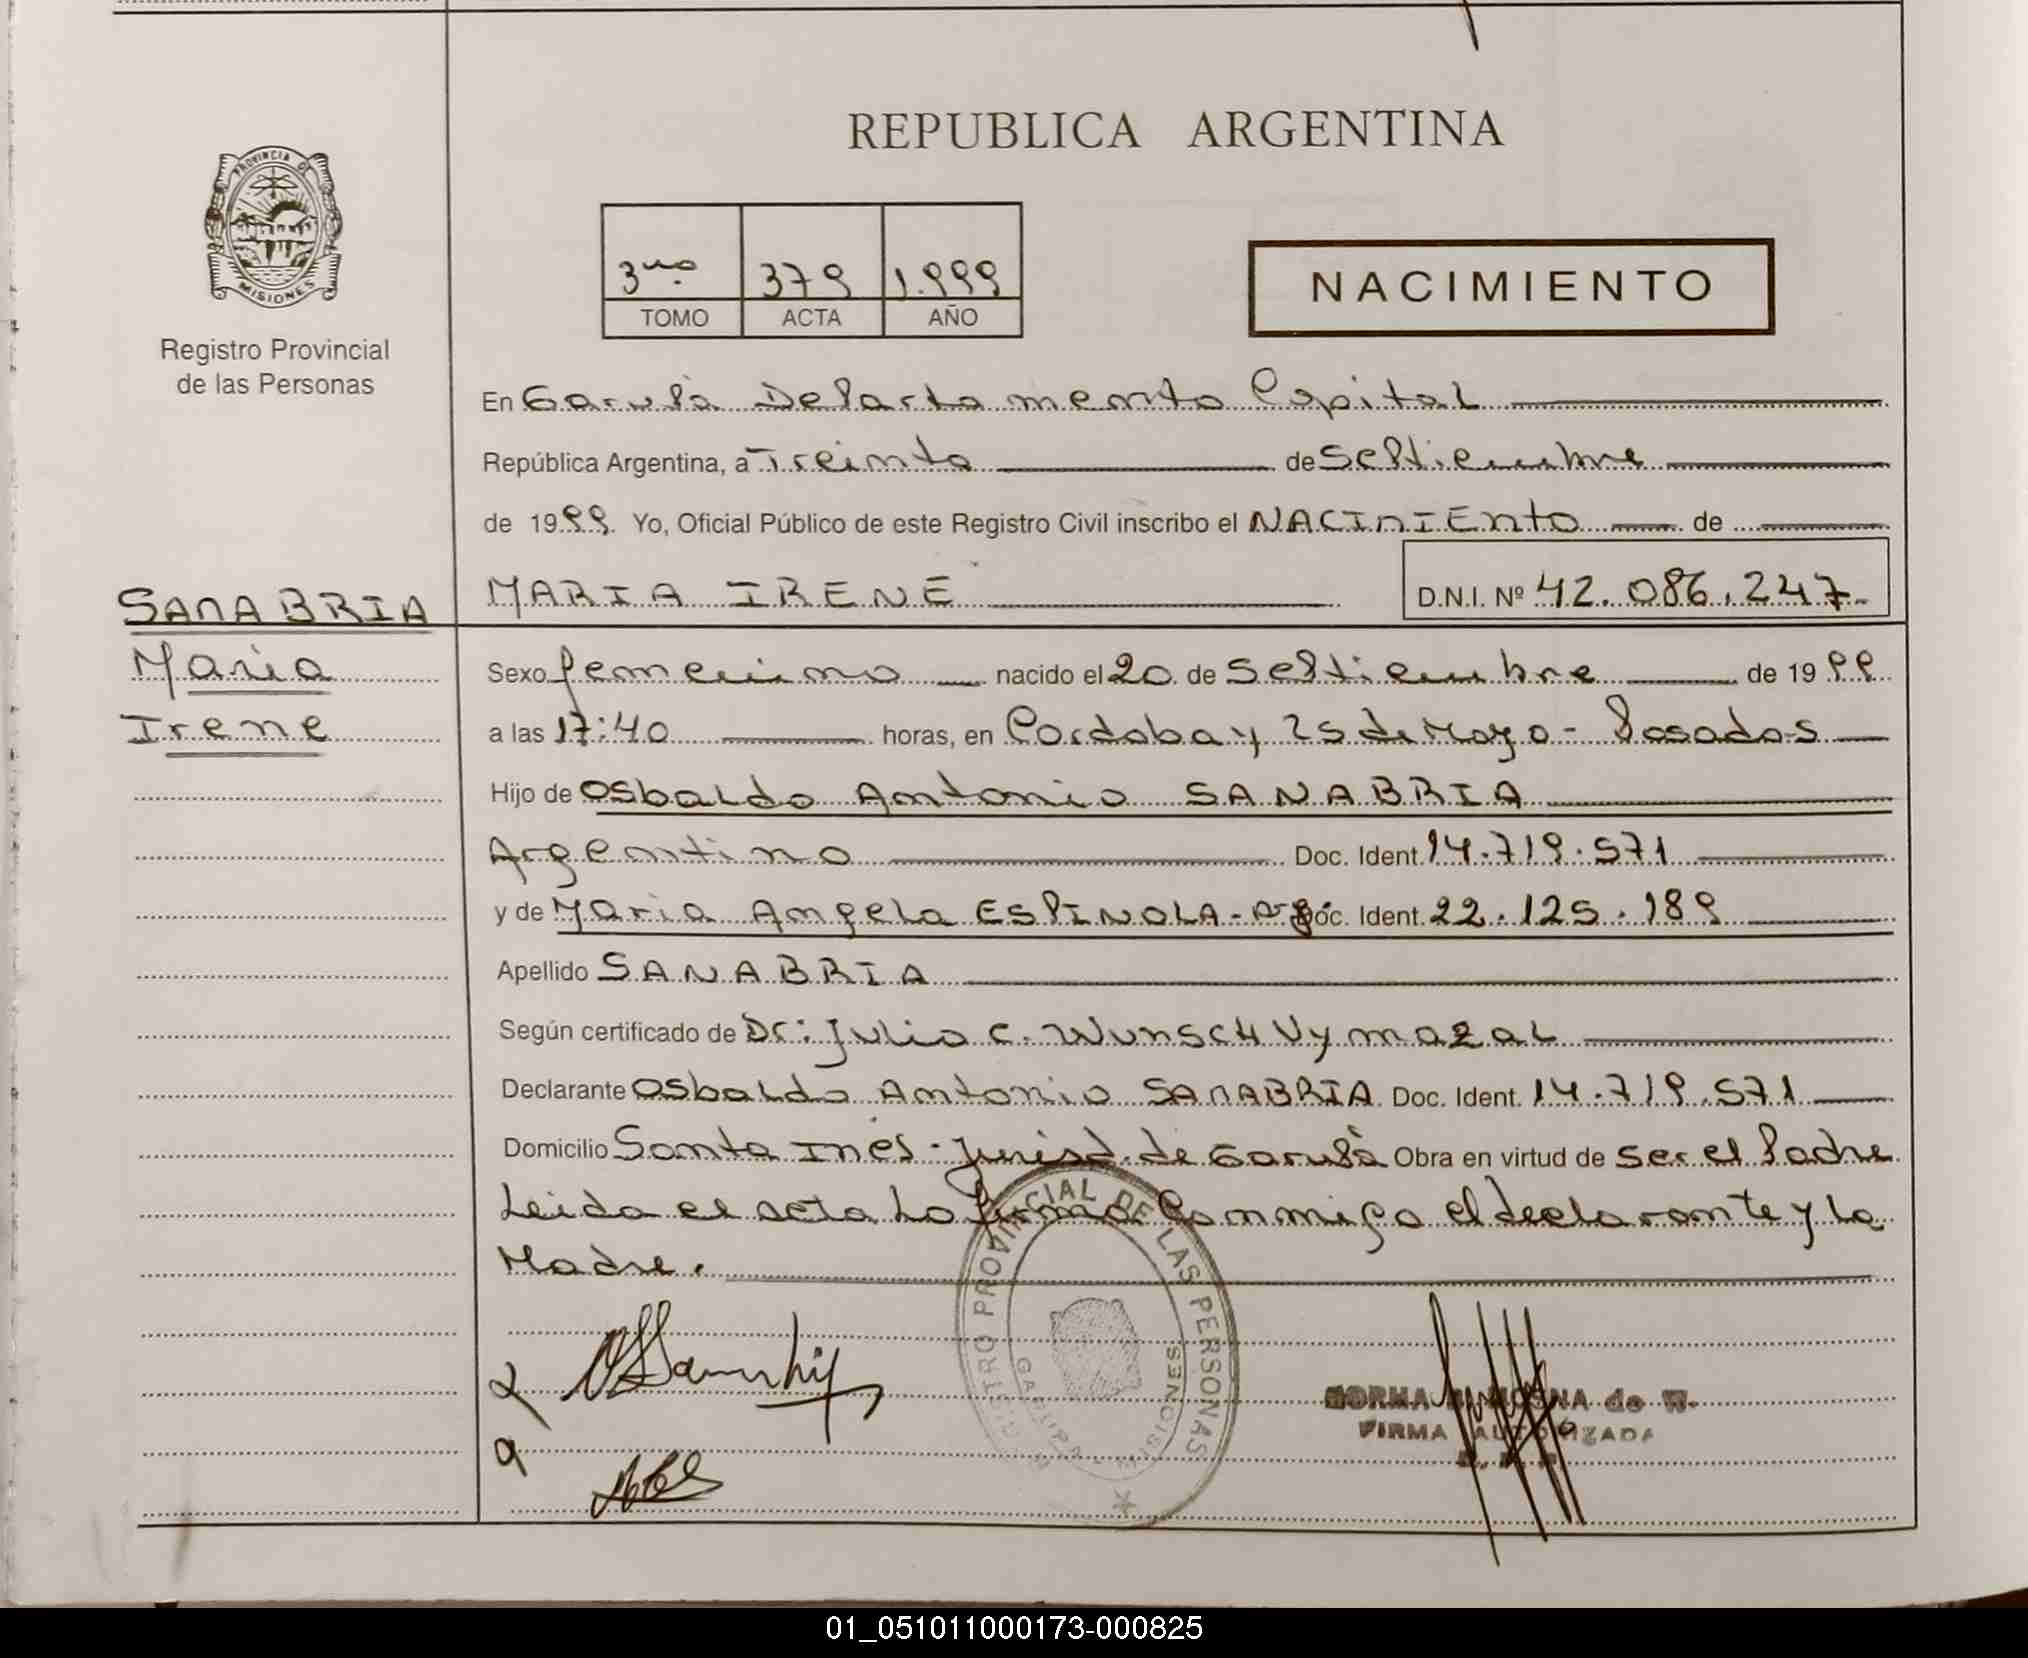 REPUBLICA ARGENTINA
PROVINCIA DE
MISIONES
Registro Provincial
de las Personas
3ero. 379 1.999
TOMO ACTA AÑO
NACIMIENTO
En Garupá Departamento Capital
República Argentina, a Treinta de Septiembre
de 1999. Yo, Oficial Público de este Registro Civil inscribo el NACIMIENTO de
MARIA IRENE D.N.I. Nº 42.086.247.-
SANABRIA
Maria
Irene
Sexo femenino nacido el 20 de Septiembre de 1999
a las 17:40 horas, en Cordoba y 25 de Mayo - Posadas
Hijo de Osbaldo Antonio SANABRIA
Argentino Doc. Ident. 14.719.571
y de Maria Angela ESPINOLA - Arg. Doc. Ident. 22.125.189
Apellido SANABRIA
Según certificado de Dr: Julio C. Wunsch Vymazal
Declarante Osbaldo Antonio SANABRIA Doc. Ident. 14.719.571
Domicilio Santa Inés - Jurisd. de Garupá Obra en virtud de ser el Padre
Leida el acta la firma Conmigo el declarante y la
Madre.
REGISTRO PROVINCIAL DE LAS PERSONAS
GARUPA - MISIONES
NORMA de W.
FIRMA AUTORIZADA
01_051011000173-000825